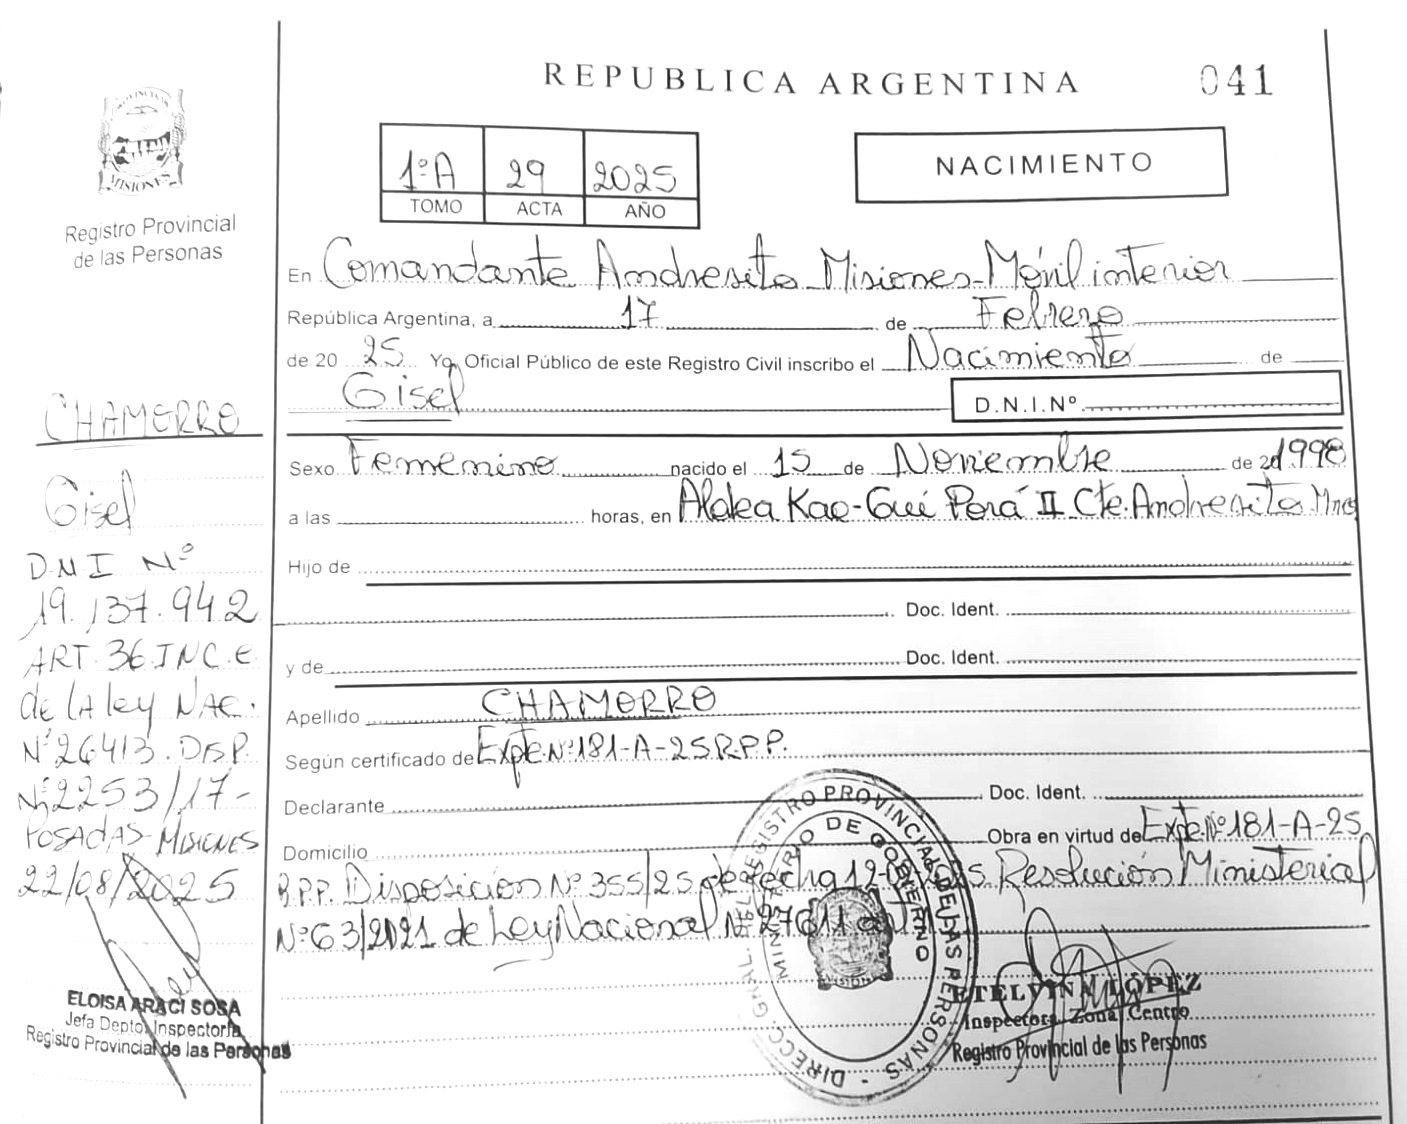 REPUBLICA ARGENTINA 041
PROVINCIA
MISIONES
Registro Provincial
de las Personas
1ºA 29 2025
TOMO ACTA AÑO
NACIMIENTO
En Comandante Andresito Misiones-Móvil interior
República Argentina, a 17 de Febrero
de 20 25 Yo, Oficial Público de este Registro Civil inscribo el Nacimiento de
Gisel D.N.I.Nº
Sexo Femenino nacido el 15 de Noviembre de 1998
a las horas, en Aldea Kao-Guí Porá II Cte. Andresito Mnes
Hijo de
Doc. Ident.
y de Doc. Ident.
Apellido CHAMORRO
Según certificado de Expte. Nº 181-A-25 R.P.P.
Declarante Doc. Ident.
Domicilio Obra en virtud de Expte. Nº 181-A-25
R.P.P. Disposición Nº 355/25 de fecha Resolución Ministerial
Nº 63/2021 de Ley Nacional Nº 27611
CHAMORRO
Gisel
D.N.I Nº
19.137.942
ART. 36 INC. C
de LA ley NAC.
Nº 26413. DISP.
Nº 2253/17-
POSADAS-MISIONES
22/08/2025
ELOISA ARACI SOSA
Jefa Depto. Inspectoría
Registro Provincial de las Personas
DIRECC. GRAL. DEL REGISTRO PROVINCIAL DE LAS PERSONAS -
MINISTERIO DE GOBIERNO
MISIONES
ETELVINA LÓPEZ
Inspectora Zona Centro
Registro Provincial de las Personas